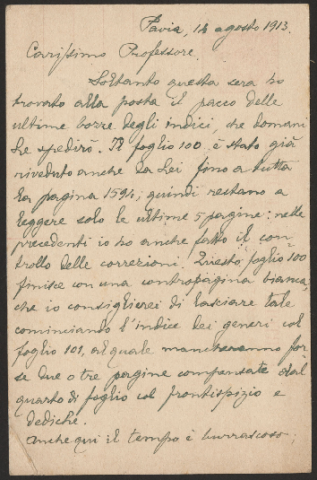 Pavia, 14 agosto 1913.
Carissimo Professore.
Soltanto questa sera ho
trovato alla posta il pacco delle
ultime bozze degli indici, che domani
Le spedirò. Il foglio 100 è stato già
riveduto anche da Lei fino a tutta
la pagina 1594; quindi restano a
leggere solo le ultime 5 pagine: nelle
precedenti io ho anche fatto il con-
trollo delle correzioni. Questo foglio 100
finisce con una contropagina bianca,
che io consiglierei di lasciare tale
cominciando l'indice dei generi col
foglio 101, al quale mancheranno for-
se due o tre pagine compensate dal
quarto di foglio col frontispizio e
dediche.
Anche qui il tempo è burrascoso.